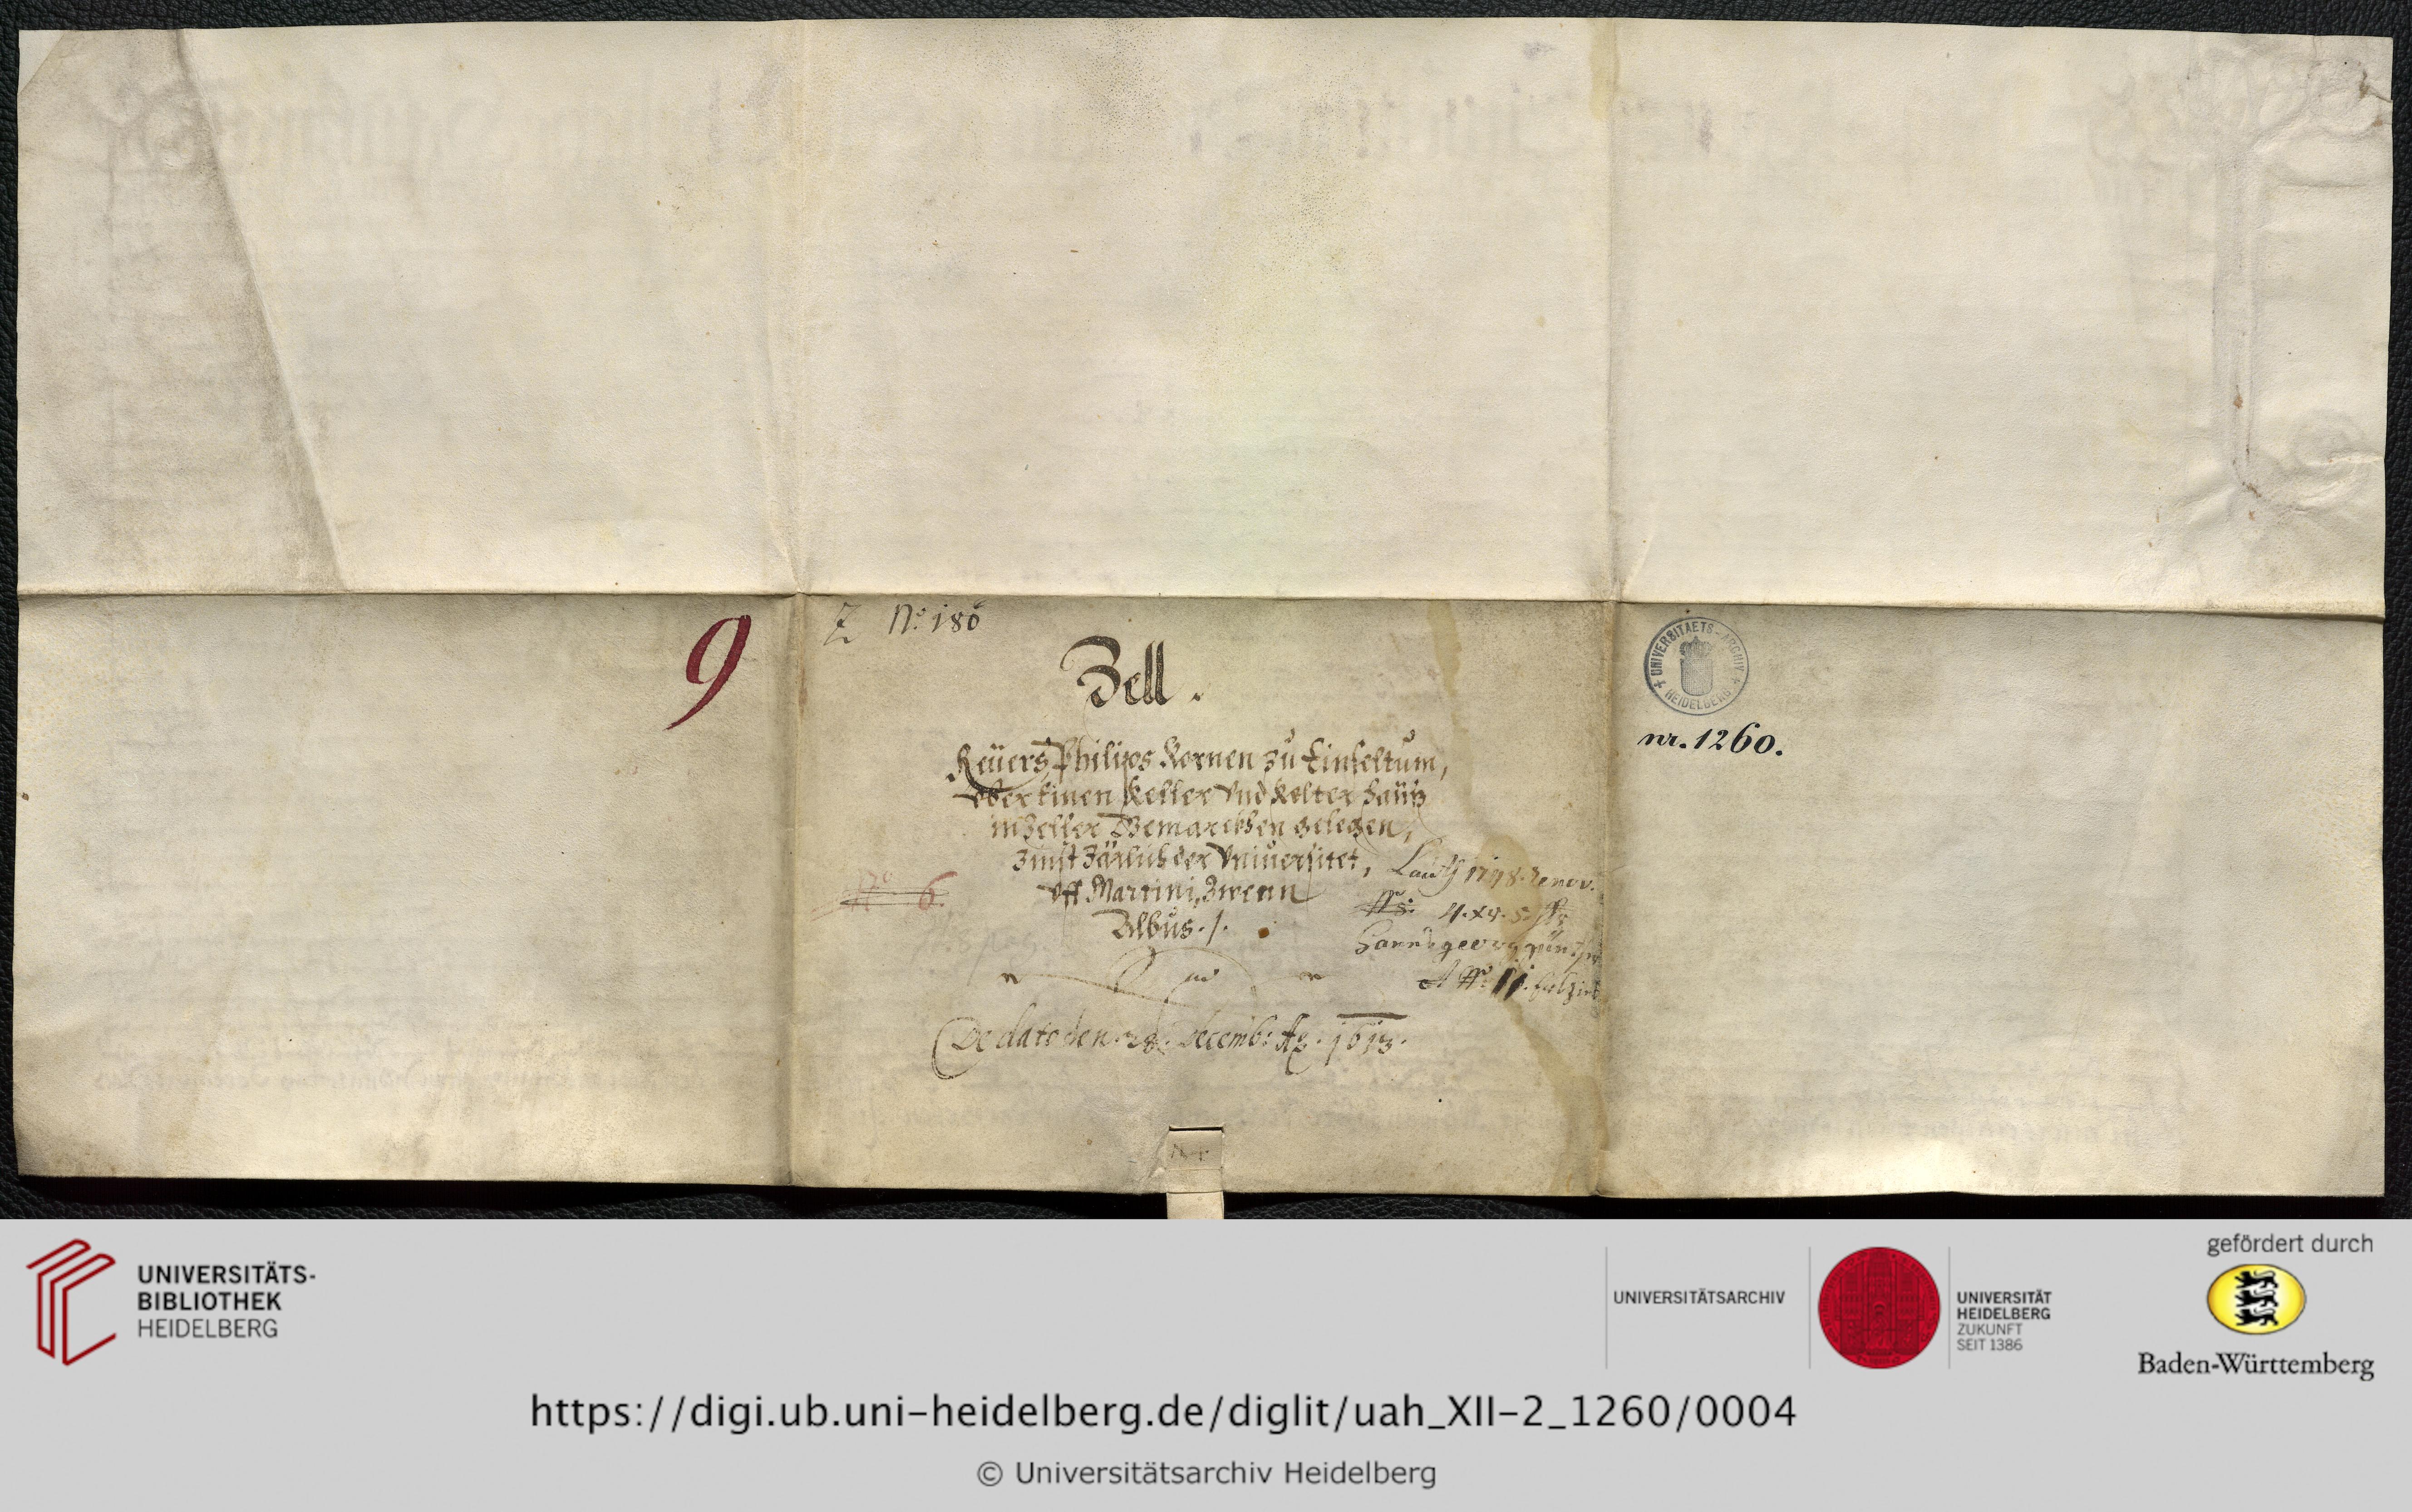 9
Z No: 180
Zell.
Reüers Philips Kornen zu Einseltum,
vber einen Keller vnd Kelter hauß
in Zeller Gemarckhen gelegen,
Zinst Järlich der Vniuersitet,
vff Martini, Zwenn
Albus./.
No 6.
Lauth 1748. renov.
De dato den 28. Decemb: Ao. 1613.
+ UNIVERSITAETS-ARCHIV + HEIDELBERG
nr. 1260.
UNIVERSITÄTS-
BIBLIOTHEK
HEIDELBERG
UNIVERSITÄTSARCHIV
UNIVERSITÄT
HEIDELBERG
ZUKUNFT
SEIT 1386
gefördert durch
Baden-Württemberg
https://digi.ub.uni-heidelberg.de/diglit/uah_XII-2_1260/0004
© Universitätsarchiv Heidelberg